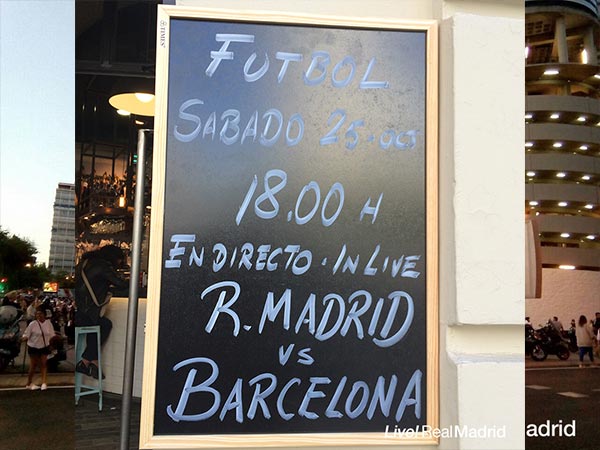 FUTBOL
SABADO 25-OCT
18.00 H
EN DIRECTO - IN LIVE
R. MADRID
VS
BARCELONA
Live! Real Madrid
adrid